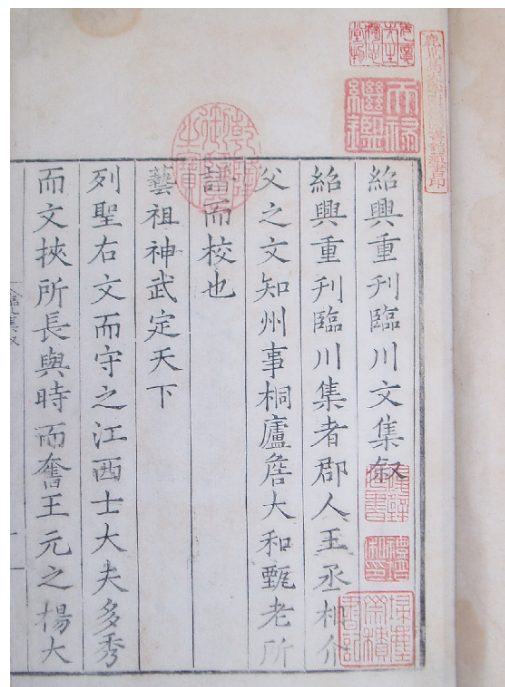 天祿
繼鑑
乾隆御覽之寶
紹興重刊臨川文集叙
紹興重刊臨川集者郡人王丞相介
父之文知州事桐廬詹大和甄老所
譜而校也
藝祖神武定天下
列聖右文而守之江西士大夫多秀
而文挾所長與時而奮王元之楊大